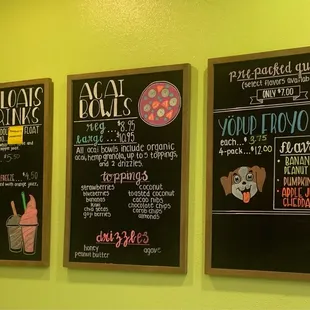 LOATS
INKS
FLOAT
$5.50
FREEZE
$4.50
ACAI
BOWLS
reg ...$8.75
large ...$10.95
All acai bowls include organic
acai, hemp granola, up to 5 toppings
and 2 drizzles.
toppings
strawberries
blueberries
bananas
kiwi
chia seeds
goji berries
coconut
toasted coconut
cacao nibs
chocolate chips
carob chips
almonds
drizzles
honey
peanut butter
agave
Pre-packed qu
(select flavors availab
ONLY $7.00
YÖPUP FROYO
each...$3.75
4-pack...$12.00
flav
BANANA
PEANUT
PUMPKI
APPLE
CHEDDA